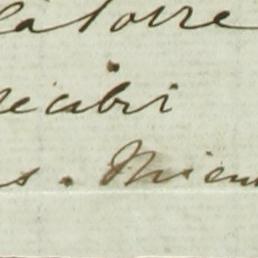 la torre
recibir
s. Mien